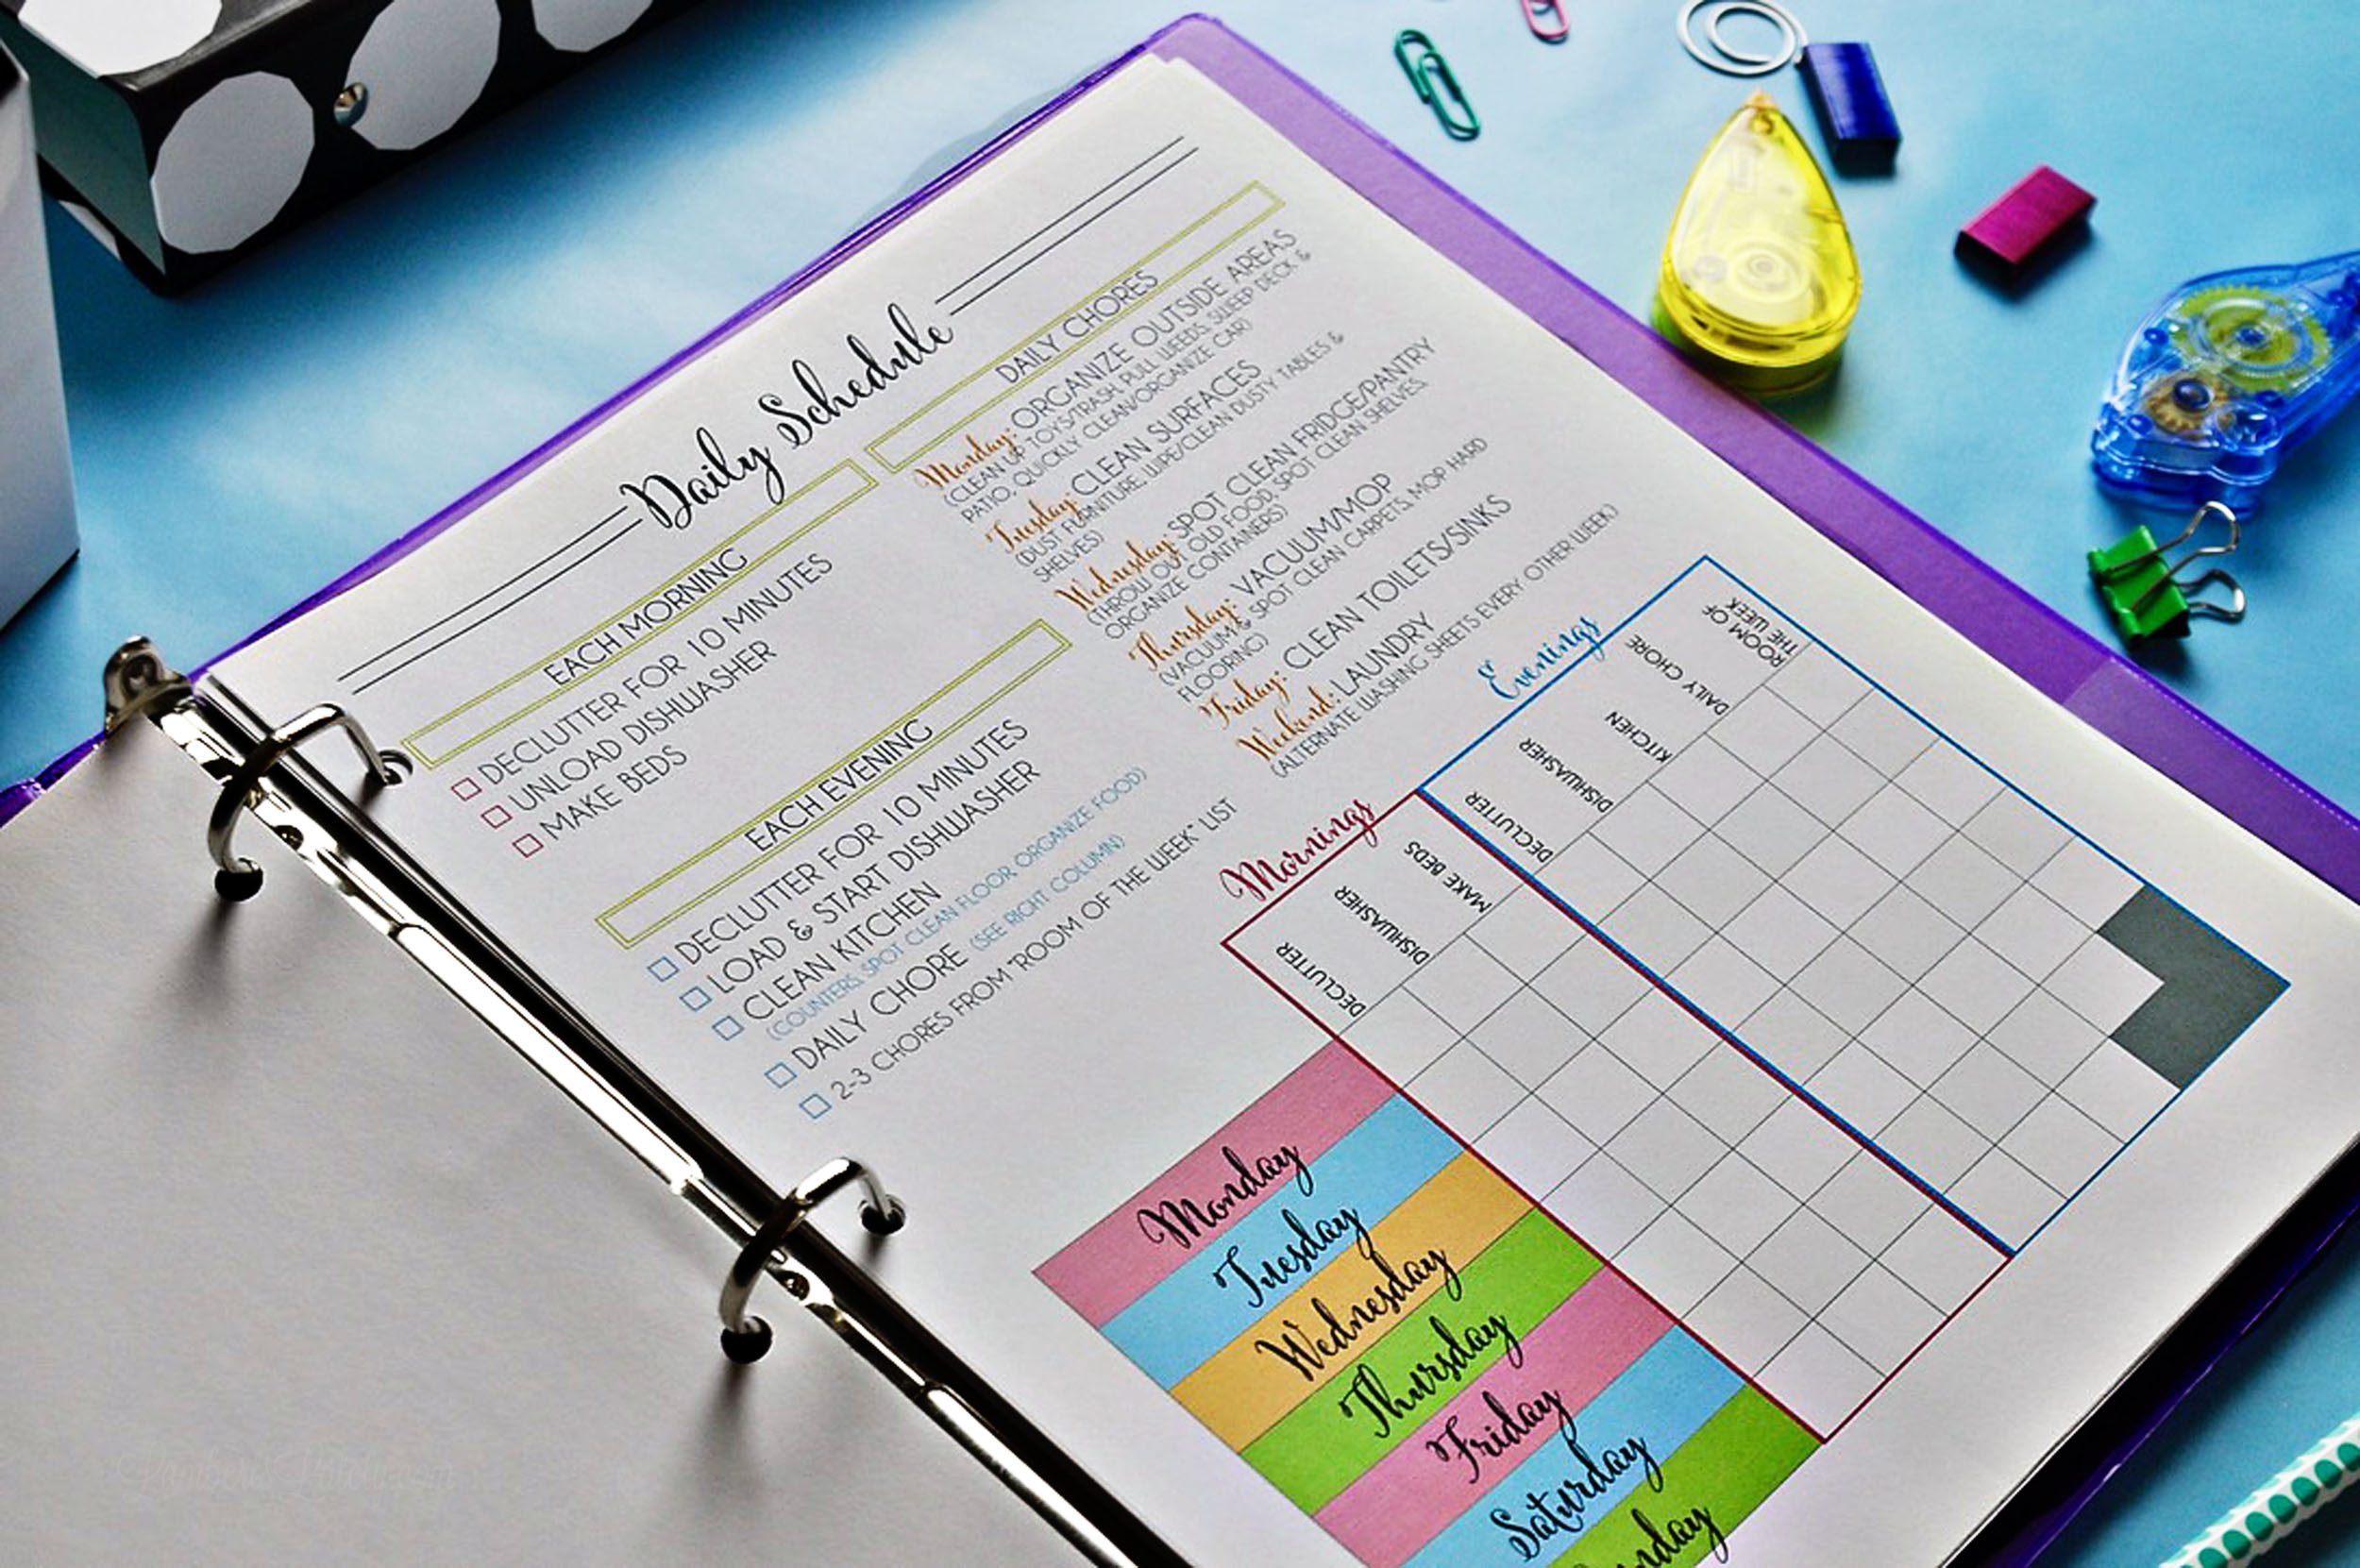 Daily Schedule
EACH MORNING
DECLUTTER FOR 10 MINUTES
UNLOAD DISHWASHER
MAKE BEDS
EACH EVENING
DECLUTTER FOR 10 MINUTES
LOAD & START DISHWASHER
CLEAN KITCHEN
(COUNTERS, SPOT CLEAN FLOOR ORGANIZE FOOD)
DAILY CHORE (SEE RIGHT COLUMN)
2-3 CHORES FROM "ROOM OF THE WEEK" LIST
DAILY CHORES
Monday: ORGANIZE OUTSIDE AREAS
(CLEAN UP TOYS/TRASH, PULL WEEDS, SWEEP DECK &
PATIO, QUICKLY CLEAN/ORGANIZE CAR)
Tuesday: CLEAN SURFACES
(DUST FURNITURE, WIPE/CLEAN DUSTY TABLES &
SHELVES)
Wednesday: SPOT CLEAN FRIDGE/PANTRY
(THROW OUT OLD FOOD, SPOT CLEAN SHELVES,
ORGANIZE CONTAINERS)
Thursday: VACUUM/MOP
(VACUUM & SPOT CLEAN CARPETS, MOP HARD
FLOORING)
Friday: CLEAN TOILETS/SINKS
Weekend: LAUNDRY
(ALTERNATE WASHING SHEETS EVERY OTHER WEEK)
Mornings
Evenings
DECLUTTER
DISHWASHER
MAKE BEDS
DECLUTTER
DISHWASHER
KITCHEN
DAILY CHORE
ROOM OF
THE WEEK
Monday
Tuesday
Wednesday
Thursday
Friday
Saturday